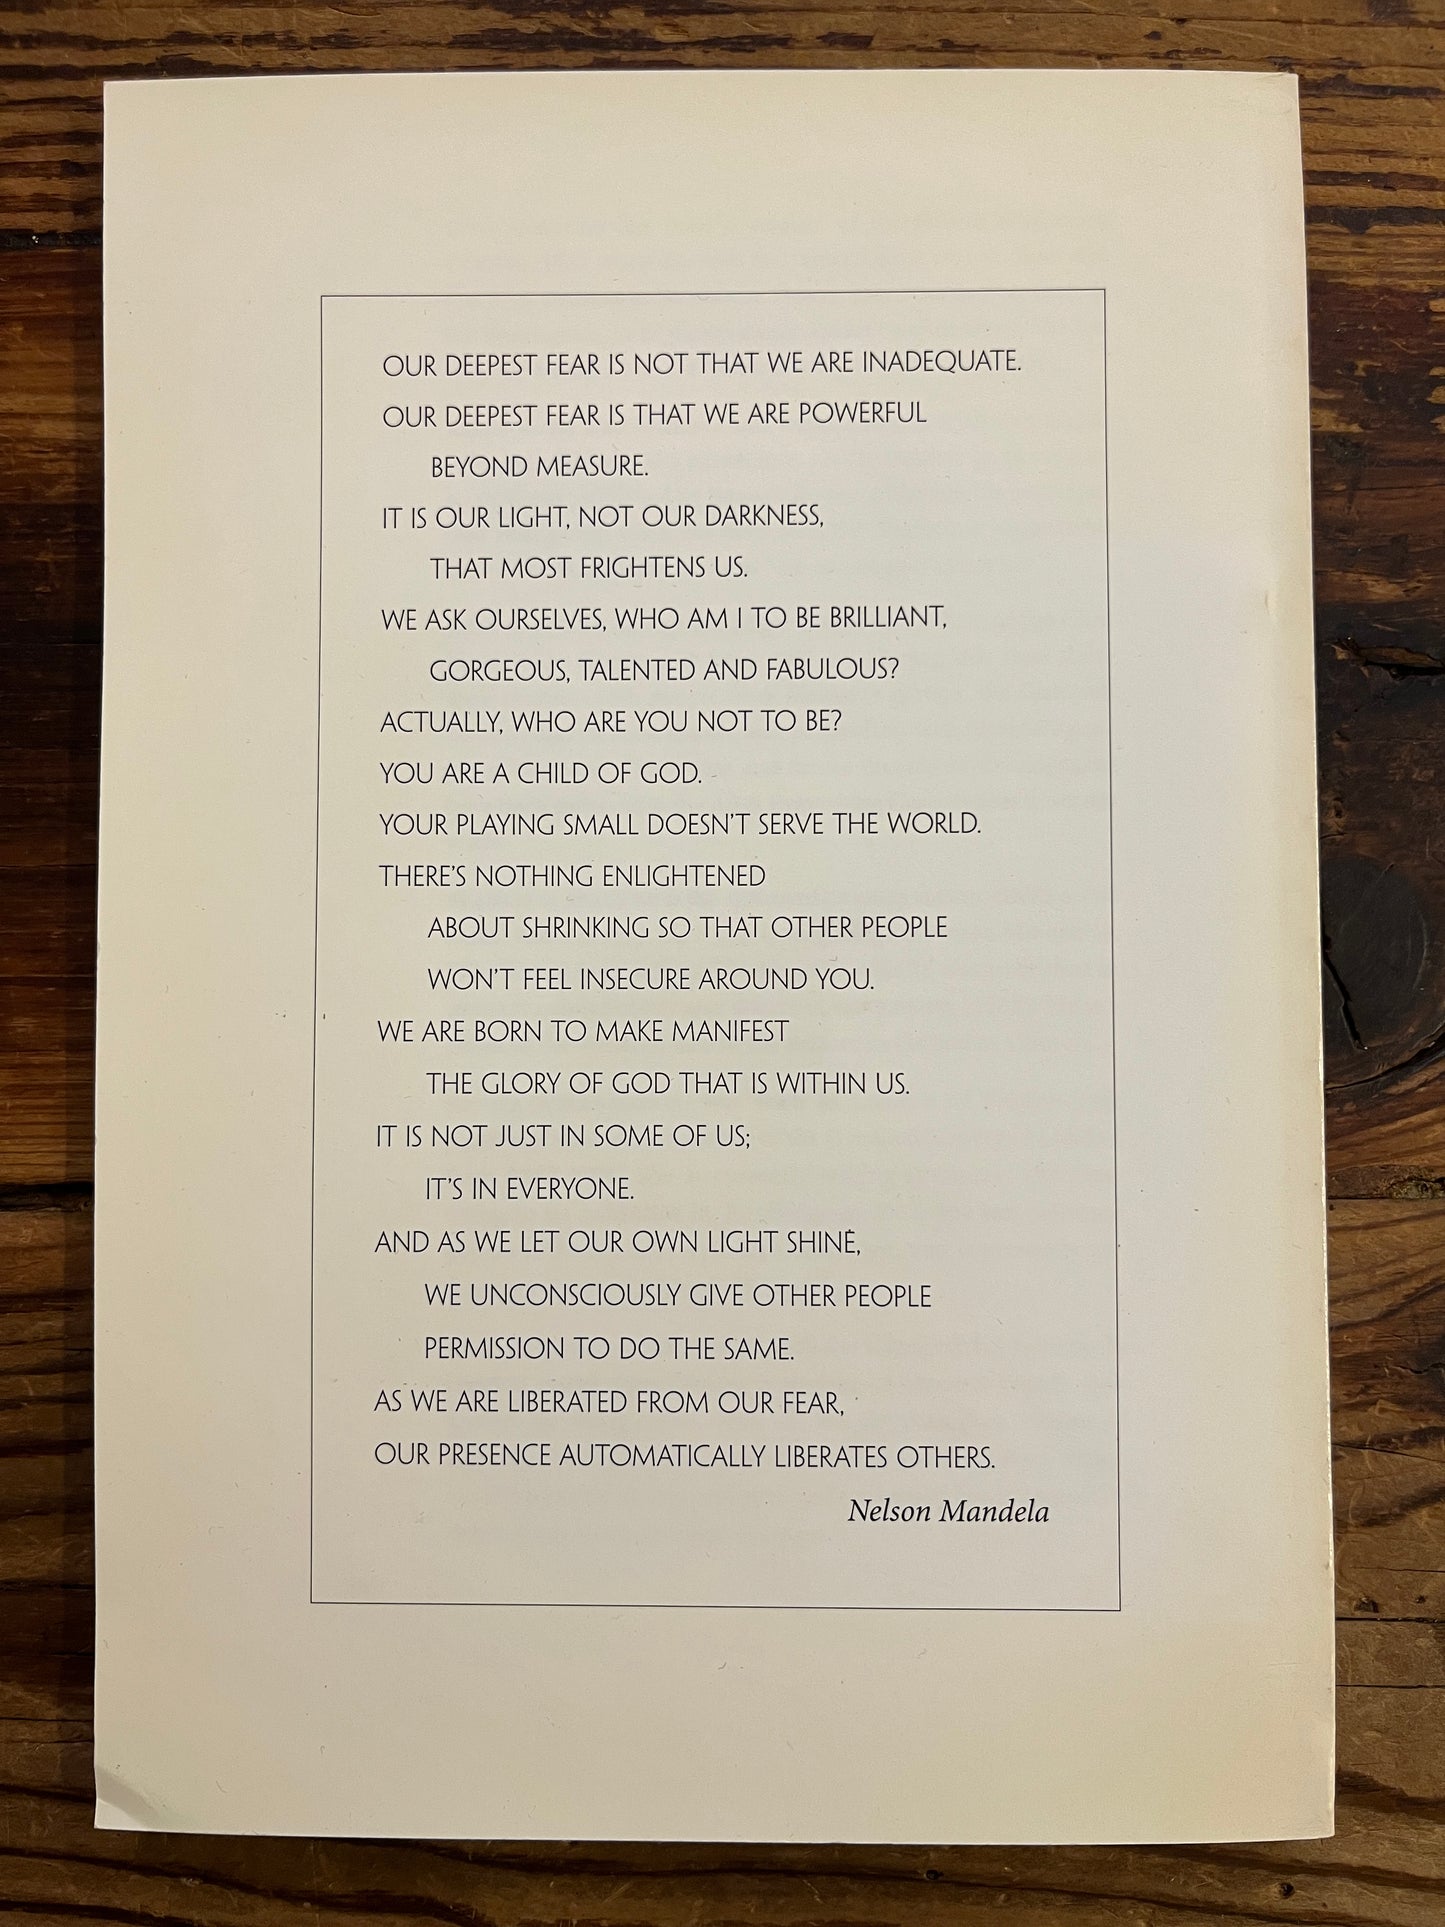 OUR DEEPEST FEAR IS NOT THAT WE ARE INADEQUATE.
OUR DEEPEST FEAR IS THAT WE ARE POWERFUL
BEYOND MEASURE.
IT IS OUR LIGHT, NOT OUR DARKNESS,
THAT MOST FRIGHTENS US.
WE ASK OURSELVES, WHO AM I TO BE BRILLIANT,
GORGEOUS, TALENTED AND FABULOUS?
ACTUALLY, WHO ARE YOU NOT TO BE?
YOU ARE A CHILD OF GOD.
YOUR PLAYING SMALL DOESN'T SERVE THE WORLD.
THERE'S NOTHING ENLIGHTENED
ABOUT SHRINKING SO THAT OTHER PEOPLE
WON'T FEEL INSECURE AROUND YOU.
WE ARE BORN TO MAKE MANIFEST
THE GLORY OF GOD THAT IS WITHIN US.
IT IS NOT JUST IN SOME OF US;
IT'S IN EVERYONE.
AND AS WE LET OUR OWN LIGHT SHINE,
WE UNCONSCIOUSLY GIVE OTHER PEOPLE
PERMISSION TO DO THE SAME.
AS WE ARE LIBERATED FROM OUR FEAR,
OUR PRESENCE AUTOMATICALLY LIBERATES OTHERS.
Nelson Mandela